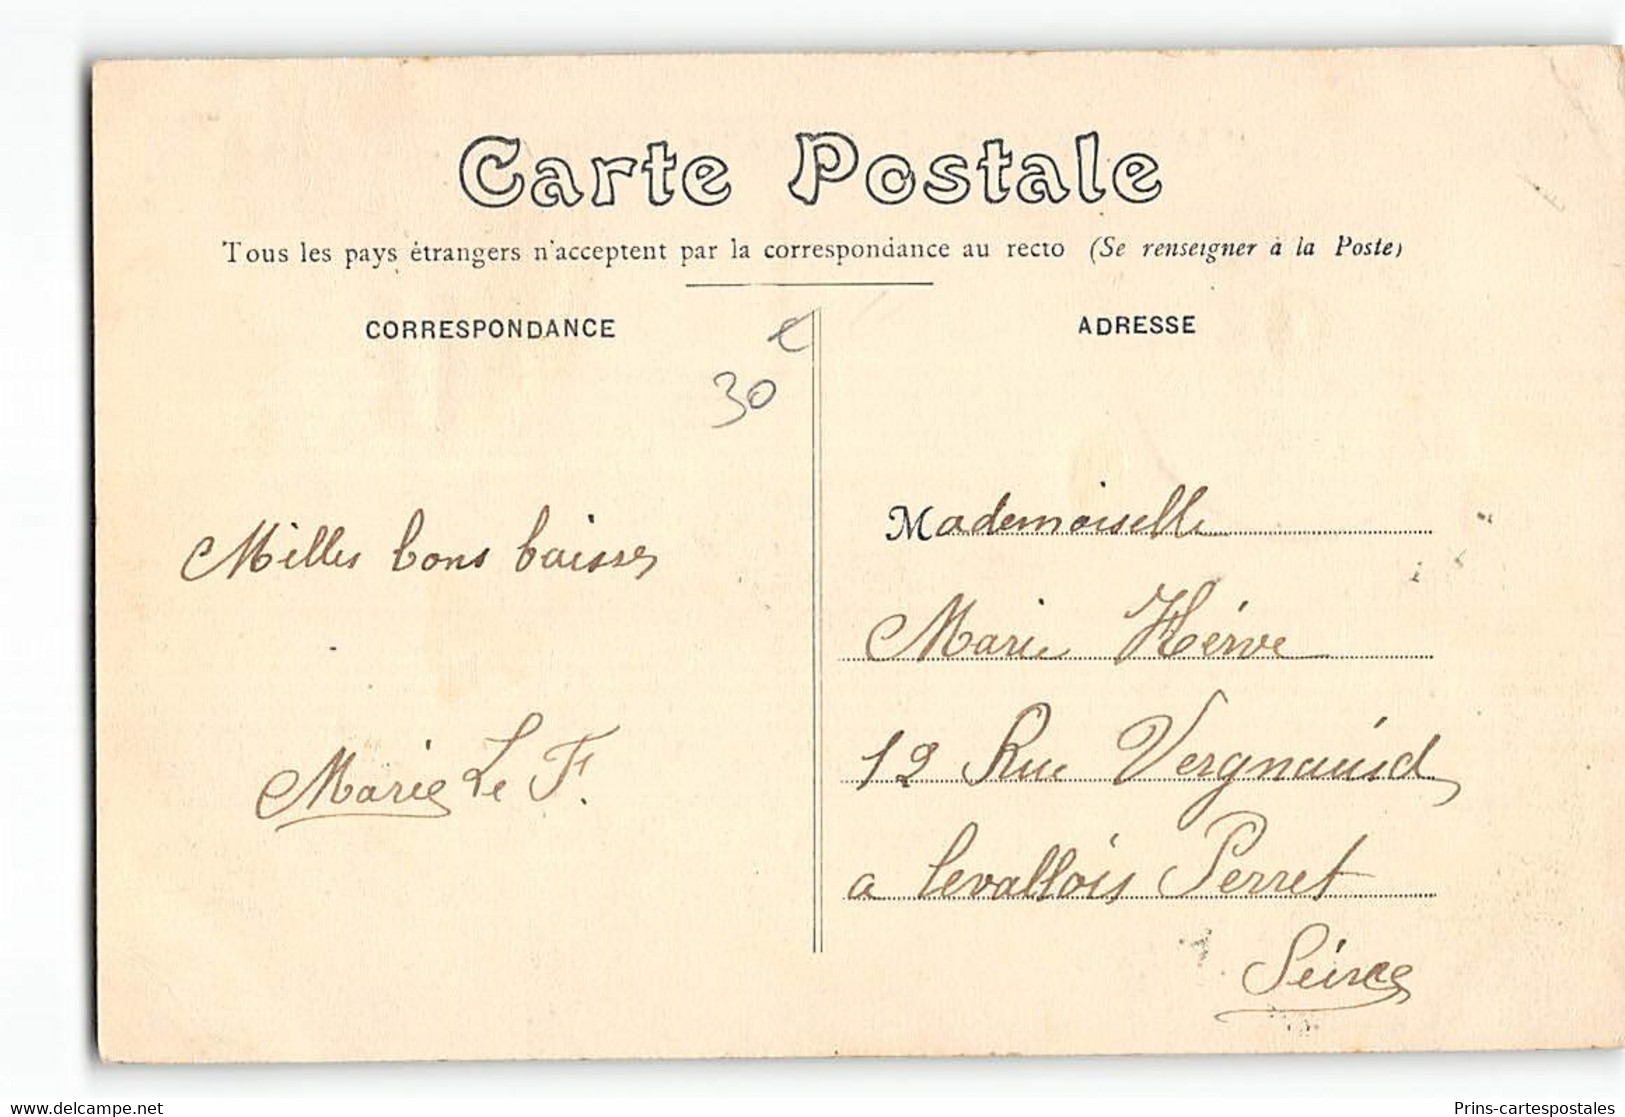 Carte Postale
Tous les pays étrangers n'acceptent par la correspondance au recto (Se renseigner à la Poste)
CORRESPONDANCE
ADRESSE
30 €
Milles bons baisers
Marie Le F.
Mademoiselle
Marie Hérve
12 Rue Vergnauid
a Levallois Perret
Seine
www.delcampe.net
Prins-cartespostales